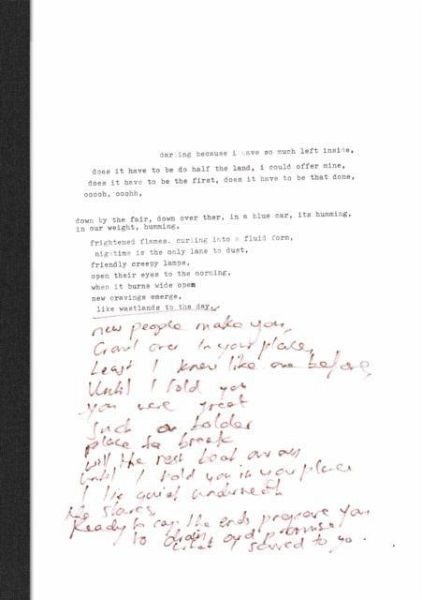 darling because i have so much left inside,
does it have to be do half the land, i could offer mine,
does it have to be the first, does it have to be that done,
ooooh, ooohh,
down by the fair, down over ther, in a blue car, its humming,
in our weight, humming,
frightened flames. curling into a fluid form,
nigtime is the only lane to dust,
friendly creepy lamps,
open their eyes to the morning,
when it burns wide open
new cravings emerge,
like wastlands to the day,
new people make you,
Crawl over in your place,
Least I knew like one before,
Until I told you
you were great
Such a bolder
place to break
will the rest boat
until I told you in your place
I lie quiet underneath
the stares
Ready to the ends prepare you
to and promise
scared to